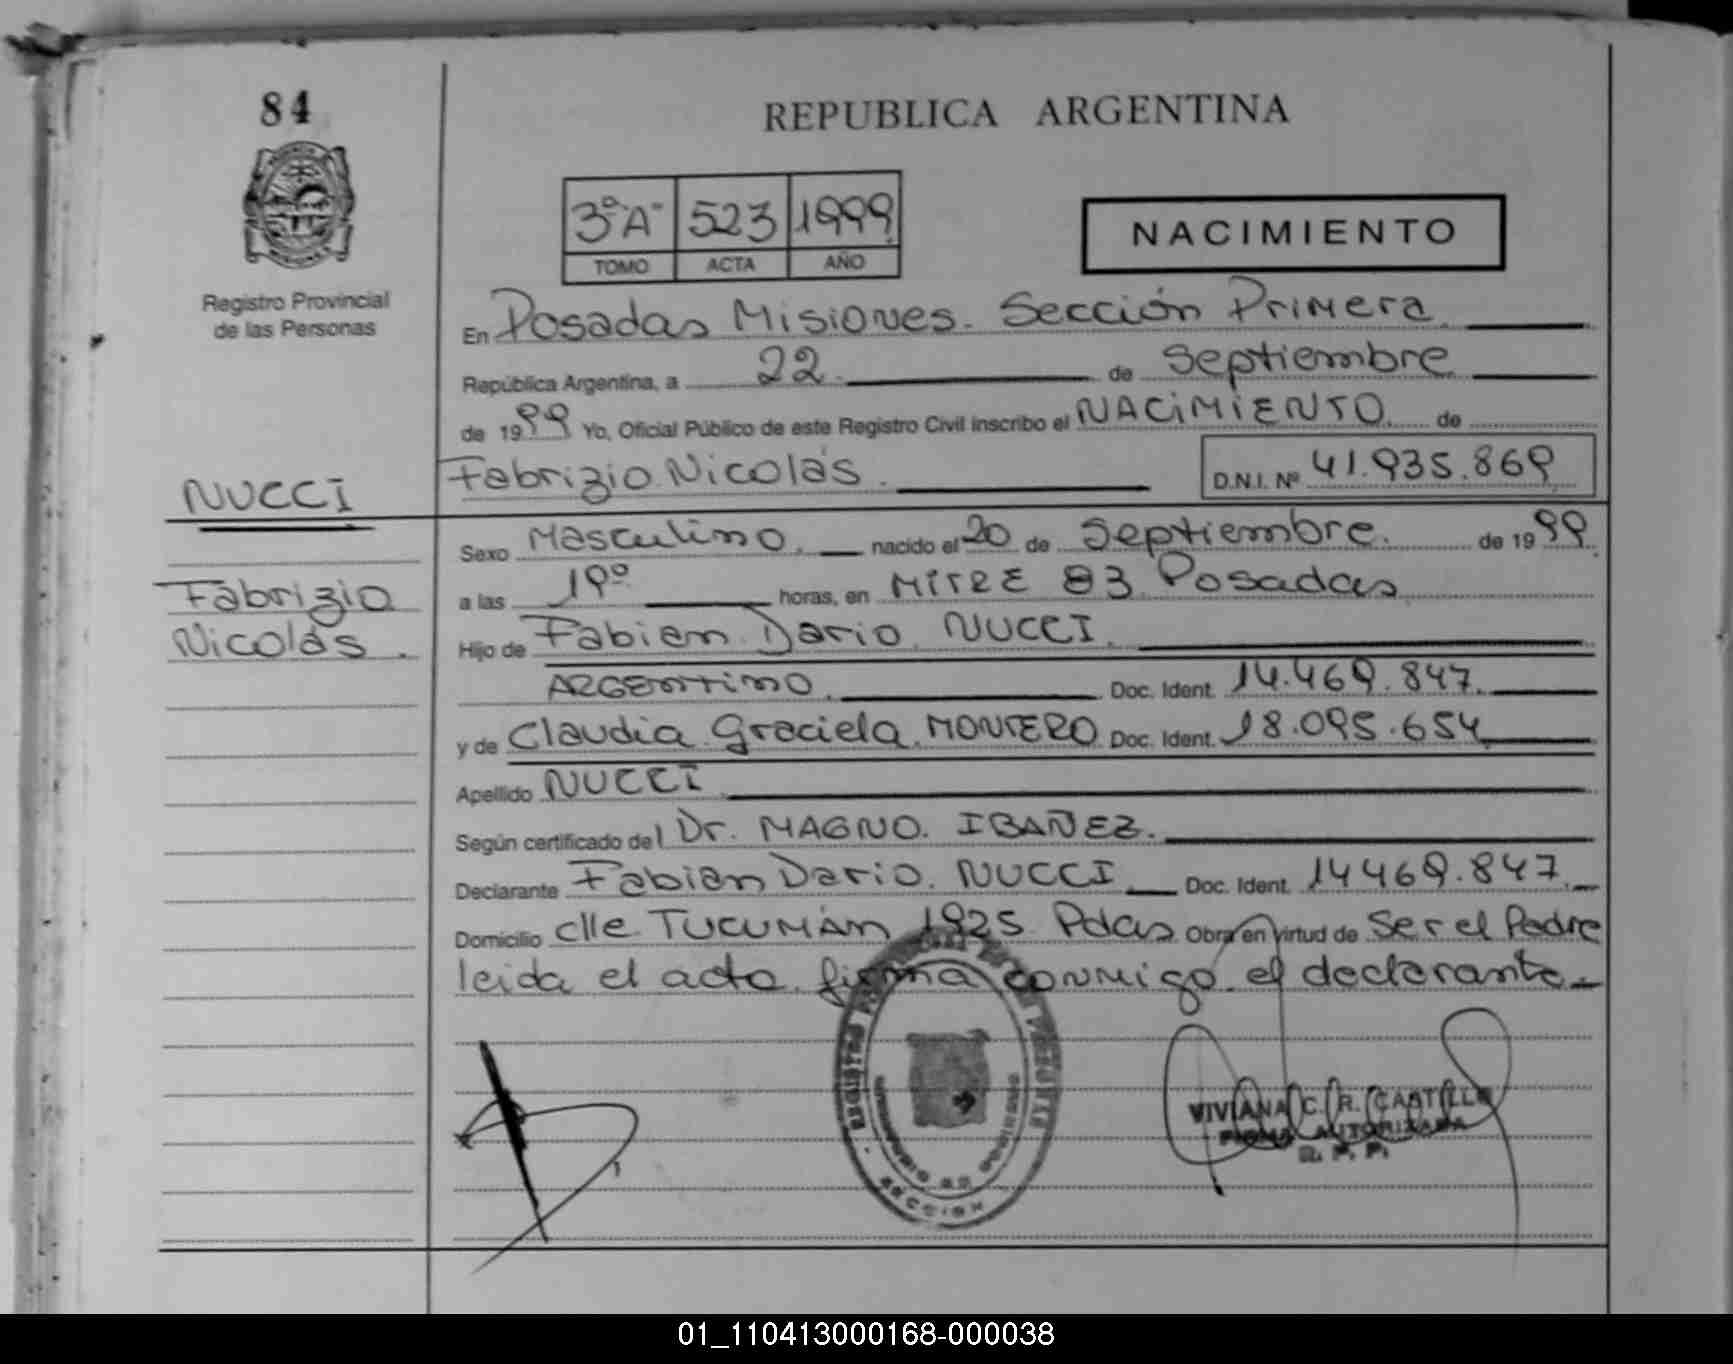 84
REPUBLICA ARGENTINA
3º "A" 523 1999
TOMO ACTA AÑO
NACIMIENTO
Registro Provincial
de las Personas
En Posadas Misiones. Sección Primera
República Argentina, a 22. de Septiembre
de 1999 Yo, Oficial Público de este Registro Civil inscribo el NACIMIENTO de
Fabrizio Nicolás. D.N.I. Nº 41.935.869
NUCCI
Fabrizio
Nicolás.
Sexo Masculino. nacido el 20 de Septiembre. de 1999
a las 19º horas, en MITRE 83 Posadas
Hijo de Fabian Dario NUCCI.
ARGENTINO. Doc. Ident. 14.469.847.
y de Claudia Graciela MONTERO Doc. Ident. 18.095.654
Apellido NUCCI
Según certificado del Dr. MAGNO. IBAÑEZ.
Declarante Fabian Dario. NUCCI Doc. Ident. 14469.847.
Domicilio clle TUCUMÁN 1925 Pdas Obra en virtud de Ser el Padre
leida el acta firma conmigo el declarante.-
REGISTRO
SECCION
VIVIANA C. R. CASTILLO
FIRMA AUTORIZADA
R. P. P.
01_110413000168-000038